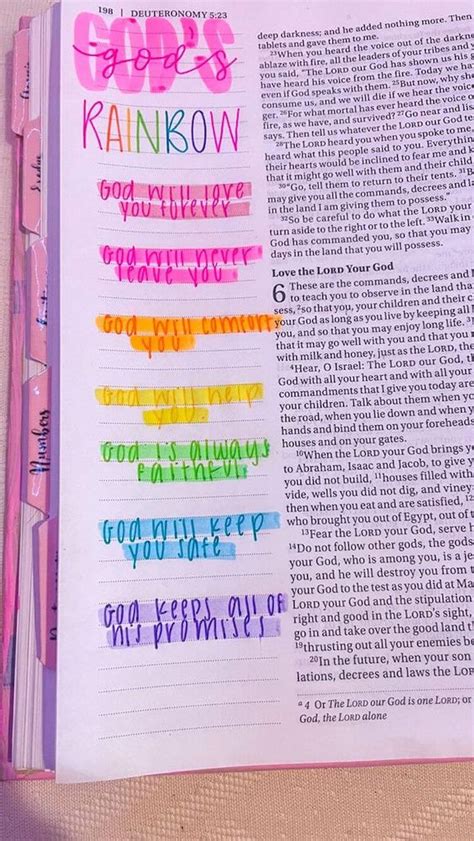 198 | DEUTERONOMY 5:23
GOD'S
god's
RAINBOW
God will love
you forever
God will never
leave you
God will comfort
you
God will help
you.
God is always
faithful
God will keep
you safe
God keeps all of
his promises
deep darkness; and he added nothing more. Then
tablets and gave them to me.
23When you heard the voice out of the darkness
ablaze with fire, all the leaders of your tribes and
you said, "The LORD our God has shown us his g
have heard his voice from the fire. Today we ha
even if God speaks with them. 25But now, why sh
consume us, and we will die if we hear the voice
er. 26For what mortal has ever heard the voice of
fire, as we have, and survived? 27Go near and li
says. Then tell us whatever the LORD our God te
28The LORD heard you when you spoke to me
heard what this people said to you. Everything
their hearts would be inclined to fear me and k
that it might go well with them and their child
30"Go, tell them to return to their tents. 31B
may give you all the commands, decrees and l
in the land I am giving them to possess."
32So be careful to do what the LORD your
turn aside to the right or to the left. 33Walk in
God has commanded you, so that you may
days in the land that you will possess.
Love the LORD Your God
6 These are the commands, decrees and
to teach you to observe in the land tha
sess, 2so that you, your children and their c
your God as long as you live by keeping all
you, and so that you may enjoy long life. 3
that it may go well with you and that you
with milk and honey, just as the LORD, the
4Hear, O Israel: The LORD our God, t
God with all your heart and with all your
commandments that I give you today are
your children. Talk about them when yo
the road, when you lie down and when
hands and bind them on your foreheads
houses and on your gates.
10When the LORD your God brings y
to Abraham, Isaac and Jacob, to give y
you did not build, 11houses filled with
vide, wells you did not dig, and viney
then when you eat and are satisfied, 12
who brought you out of Egypt, out of t
13Fear the LORD your God, serve h
14Do not follow other gods, the gods
your God, who is among you, is a je
you, and he will destroy you from t
your God to the test as you did at Ma
LORD your God and the stipulation
right and good in the LORD's sight,
go in and take over the good land t
19thrusting out all your enemies be
20In the future, when your son
lations, decrees and laws the LOR
a 4 Or The LORD our God is one LORD; or
God, the LORD alone
Exodus
Numbers